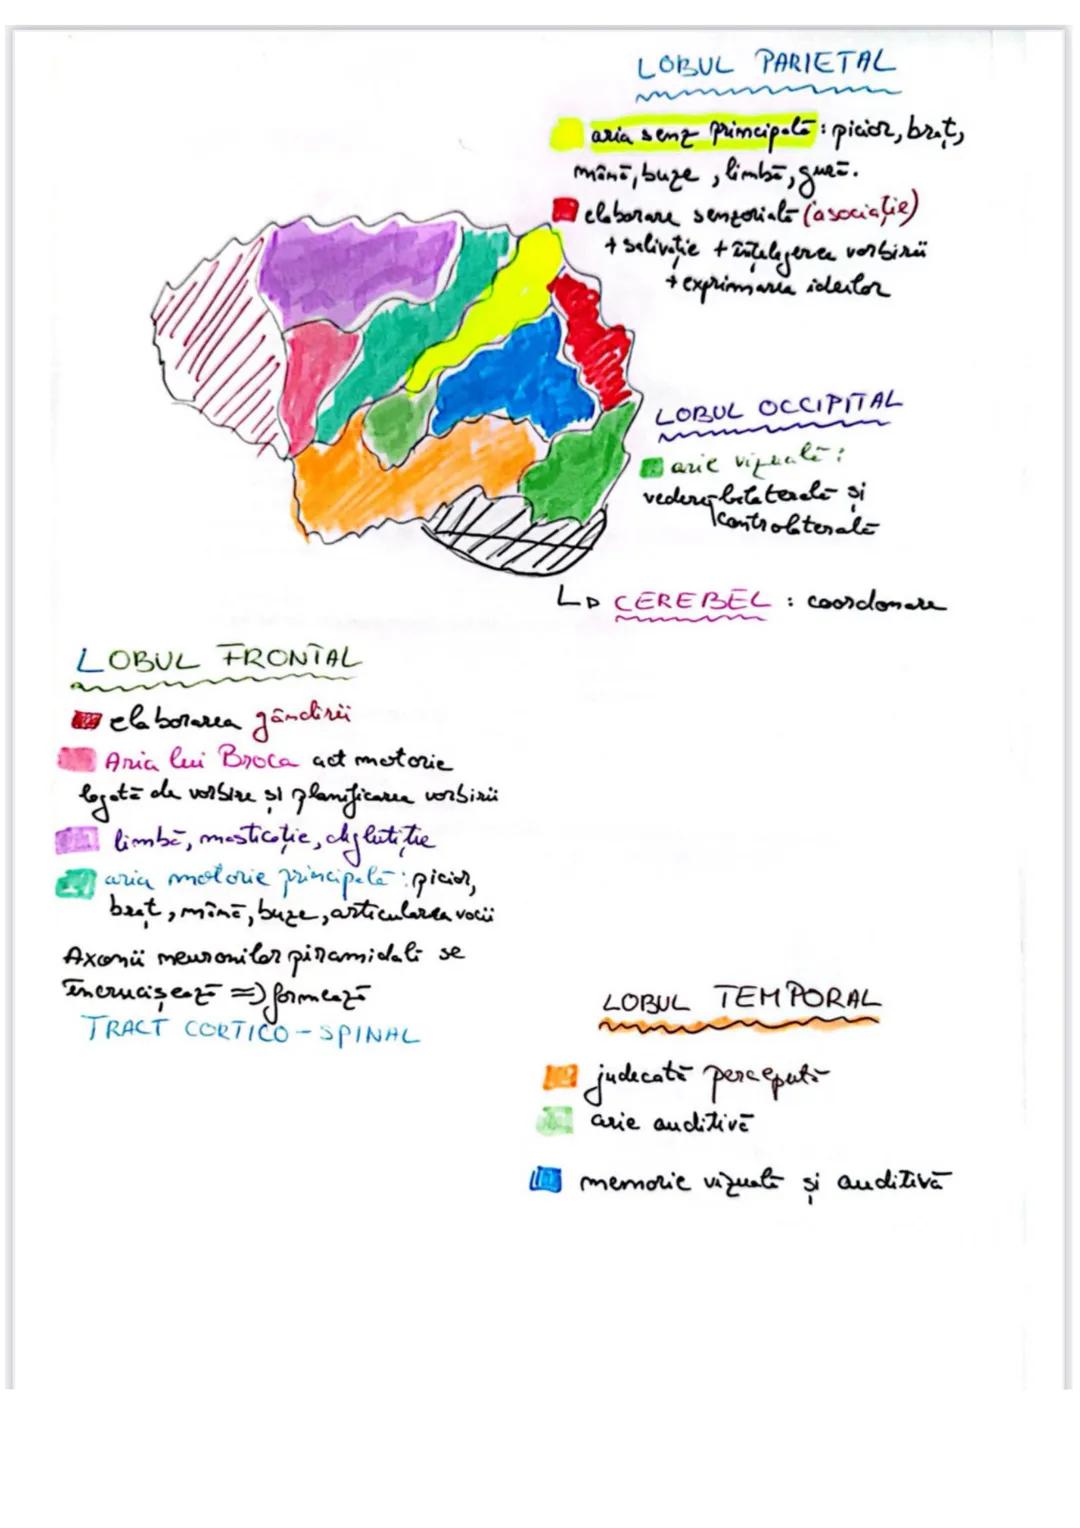 LOBUL PARIETAL
aria senz principală : picior, braț,
mână, buze, limbă, gură.
elaborare senzorială (asociație)
+ salivație + înțelegerea vorbirii
+ exprimarea ideilor
LOBUL OCCIPITAL
arie vizuală :
vedere bilaterală și
controlaterală
CEREBEL : coordonare
LOBUL FRONTAL
elaborarea gândirii
Aria lui Broca act motorie
legată de vorbire și planificarea vorbirii
limbă, masticație, deglutiție
aria motorie principală : picior,
braț, mână, buze, articularea vocii
Axonii neuronilor piramidali se
încrucișează => formează
TRACT CORTICO-SPINAL
LOBUL TEMPORAL
judecată percepută
arie auditivă
memorie vizuală și auditivă